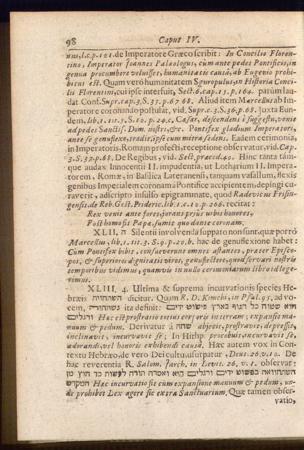 98 Caput IV.
nni, l.c.p. 121. de Imperatore Græco scribit: In Concilio Floren-
tino, Imperator Joannes Palæologus, cum ante pedes Pontificis, in
genua procumbere voluisset, humanitatis causâ, ab Eugenio prohi-
bitus est. Quam verò humanitatem Sguropulus, in Historia Conci-
lii Florentini, cui ipse interfuit, Sect. 6. cap. 13. p. 164. parùm lau-
dat. Conf. Supr. cap. 3. S. 37. p. 67. 68. Aliud item Marcellus ab Im-
peratore coronando postulat, vid. Supr. c. 3. S. 36. p. 68. Juxta Eun-
dem, lib. 1. tit. 5. S. 10. p. 24. c. Cæsar, descendens è suggestu, venit
ad pedes Sanctiss. Dom. nostri, &c. Pontifex gladium Imperatori,
ante se genuflexo, tradit; ipse cum mitra sedens. Eadem cerimonia,
in Imperatoris Romani profecti, receptione observatur, vid. Cap.
3. S. 37. p. 68. De Regibus, vid. Sect. præced. 40. Hinc tanta tám-
que audax Innocentii II. impudentia, ut Lotharium II. Impera-
torem, Romæ, in Basilica Lateranensi, tanquam vasallum, flexis
genibus Imperialem coronam à Pontifice accipientem, depingi cu-
raverit, adscripto insulso epigrammate, quod Radevicus Frisin-
gensis, de Reb. Gest. Frideric. lib. 1. c. 10. p. 266. recitat:
Rex venit ante fores, jurans prius urbis honores,
Post homo fit Papæ, sumit quo dante coronam.
XLII. Silentii involvenda suppato non sunt, quæ porrò
Marcellus, lib. 1. tit. 3. S. 9. p. 20. b. hac de genuflexione habet:
Cùm Pontifex bibit, universi omnes astantes, præter Episco-
pos, & superiores dignitatis viros, genuflectere, quod servari nostris
temporibus vidimus, quamvis in nullo cerimoniarum libro id lege-
rimus.
XLIII. 4. Ultima & suprema incurvationis species He-
bræis השתחויה dicitur. Quam R. D. Kimchi, in Psal. 95, ad vo-
cem, נשתחוה ita definit: השתחויה
הוא שטוח כל הגוף בארץ פישוט ידים
ורגלים Hæc est prostratio totius corporis in terram, expansæ ma-
nuum & pedum. Derivatur à שחה abjecit, prostravit, depressit,
inclinavit, incurvavit se; In Hithp. procubuit, incurvavit se,
adoravit, vel honoris exhibendi causâ. Hæc autem vox in Con-
textu Hebræo, de vero Dei cultu, usurpatur, Deut. 26, v. 10. De
hac reverentia R. Salom. Jarch. in Levit. 26, v. 1. observat:
השתחויה בפשוט ידים ורגלים הוא ואסרה תורה לעשות כן חוץ מן
המקדש Hæc incurvatio fit cum expansione manuum & pedum, un-
de prohibet Lex agere sic extra Sanctuarium. Quæ tamen obser-
vatio,